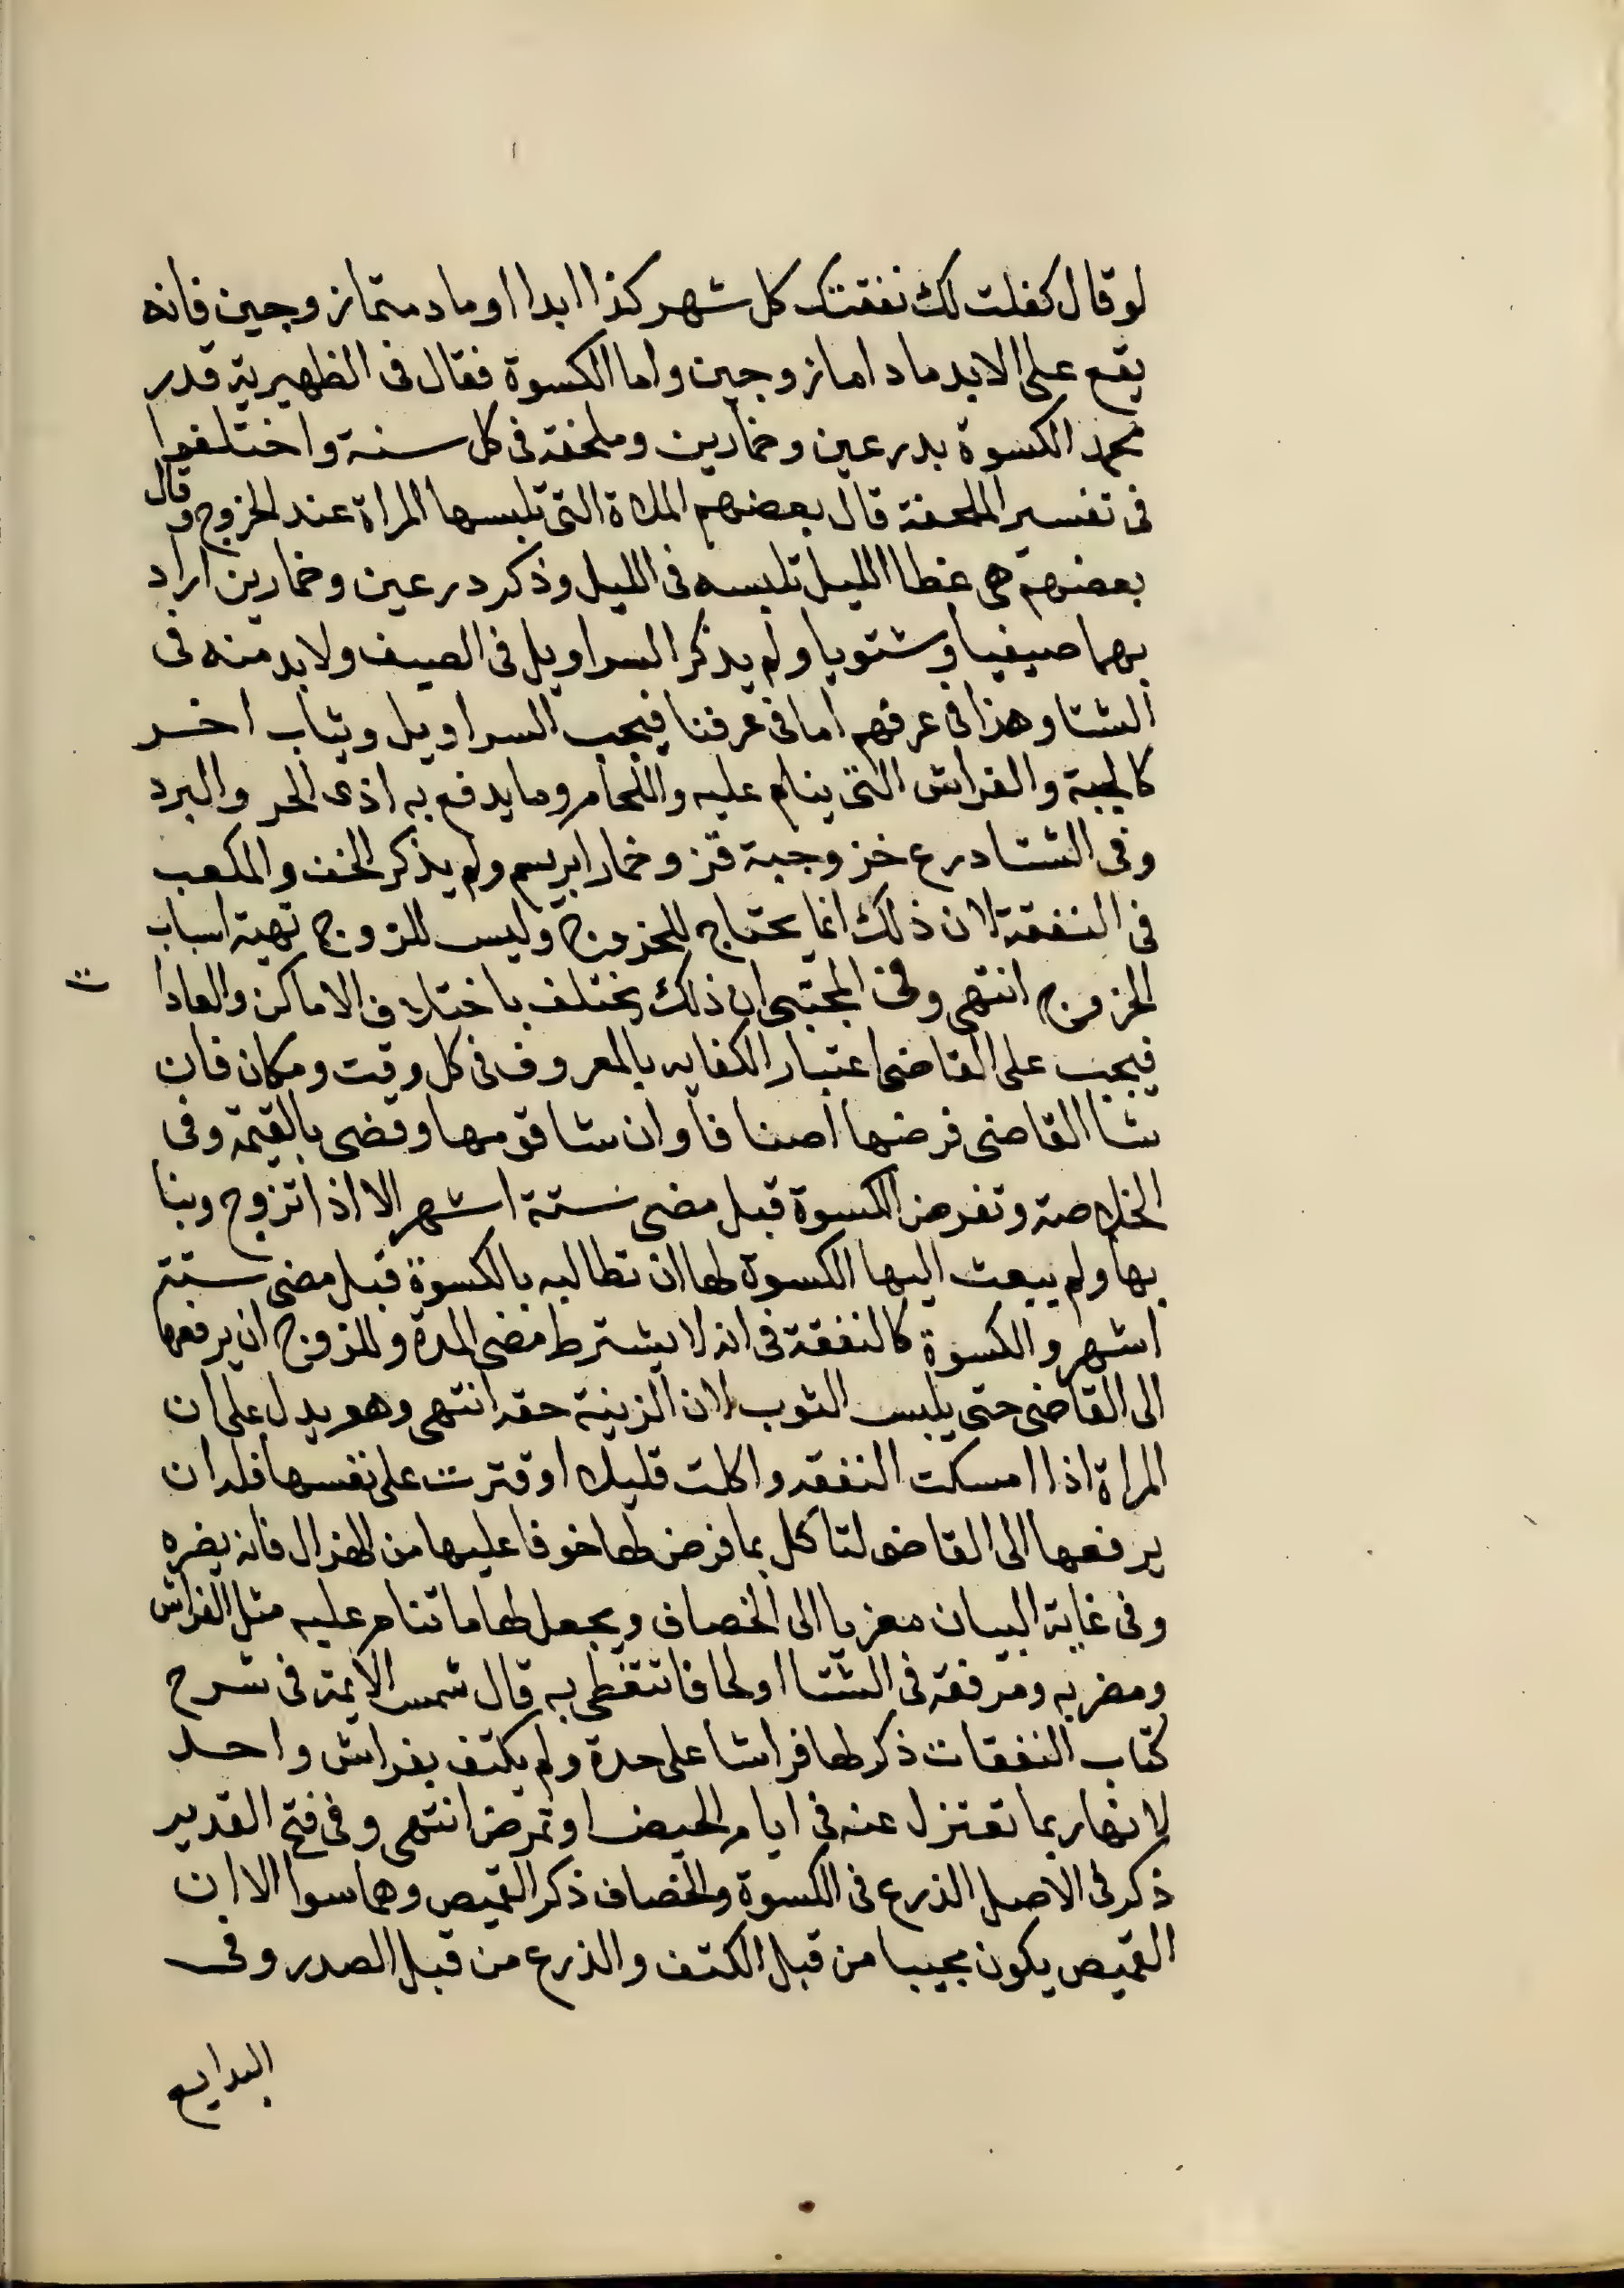 لو قال كفلت لك نفقتك كل شهر كذا ابدا او ما دمتما زوجين فانه
يقع على الابد ما داما زوجين واما الكسوة فقال فى الظهيرية قدر
محمد الكسوة بدرعين وخمارين وملحفة فى كل سنة واختلفوا
فى تفسير الملحفة قال بعضهم الملاة التى تلبسها المراة عند الخروج وقال
بعضهم هى غطا الليل تلبسه فى الليل وذكر درعين وخمارين اراد
بهما صيفيا وشتويا ولم يذكر السراويل فى الصيف ولابد منه فى
الشتا وهذا فى عرفهم اما فى عرفنا فيجب السراويل وثياب اخر
كالجبة والفراش التى ينام عليه واللحاف وما يدفع به اذى الحر والبرد
وفى الشتا درع خز وجبة قز وخمار ابريسم ولم يذكر الخف والمكعب
فى النفقة لان ذلك انما يحتاج للخروج وليس للزوج تهية اسباب
الخروج انتهى وفى المجتبى ان ذلك يختلف باختلاف الاماكن والعادا
ت
فيجب على القاضى اعتبار الكفايه بالمعروف فى كل وقت ومكان فان
شا القاضى فرضها اصنافا وان شا قومها وقضى بالقيمة وفى
الخلاصة وتفرض الكسوة قبل مضى ستة اشهر الا اذا تزوج وبنا
بها ولم يبعث اليها الكسوة لها ان تطالبه بالكسوة قبل مضى ستة
اشهر والكسوة كالنفقة فى انه لا يشترط مضى المدة وللزوج ان يرفعها
الى القاضى حتى يلبس الثوب لان الزينة حقه انتهى وهو يدل على ان
المراة اذا امسكت النفقه واكلت قليلا او قترت على نفسها فله ان
يرفعها الى القاضى لتاكل بما فرض لها خوفا عليها من الهزال فانه يضره
وفى غاية البيان معزيا الى الخصاف ويجعل لها ما تنام عليه مثل الفراش
ومضربه ومرفقة فى الشتا اولحافا تتغطى به قال شمس الايمة فى شرح
كتاب النفقات ذكر لها فراشا على حدة ولم يكتف بفراش واحد
لانها ربما تعتزل عنه فى ايام الحيض او تمرض انتهى وفى فتح القدير
ذكر فى الاصل الذرع فى الكسوة والخصاف ذكر القميص وهما سوا الا ان
القميص يكون مجيبا من قبل الكتف والذرع من قبل الصدر وفى
البدايع